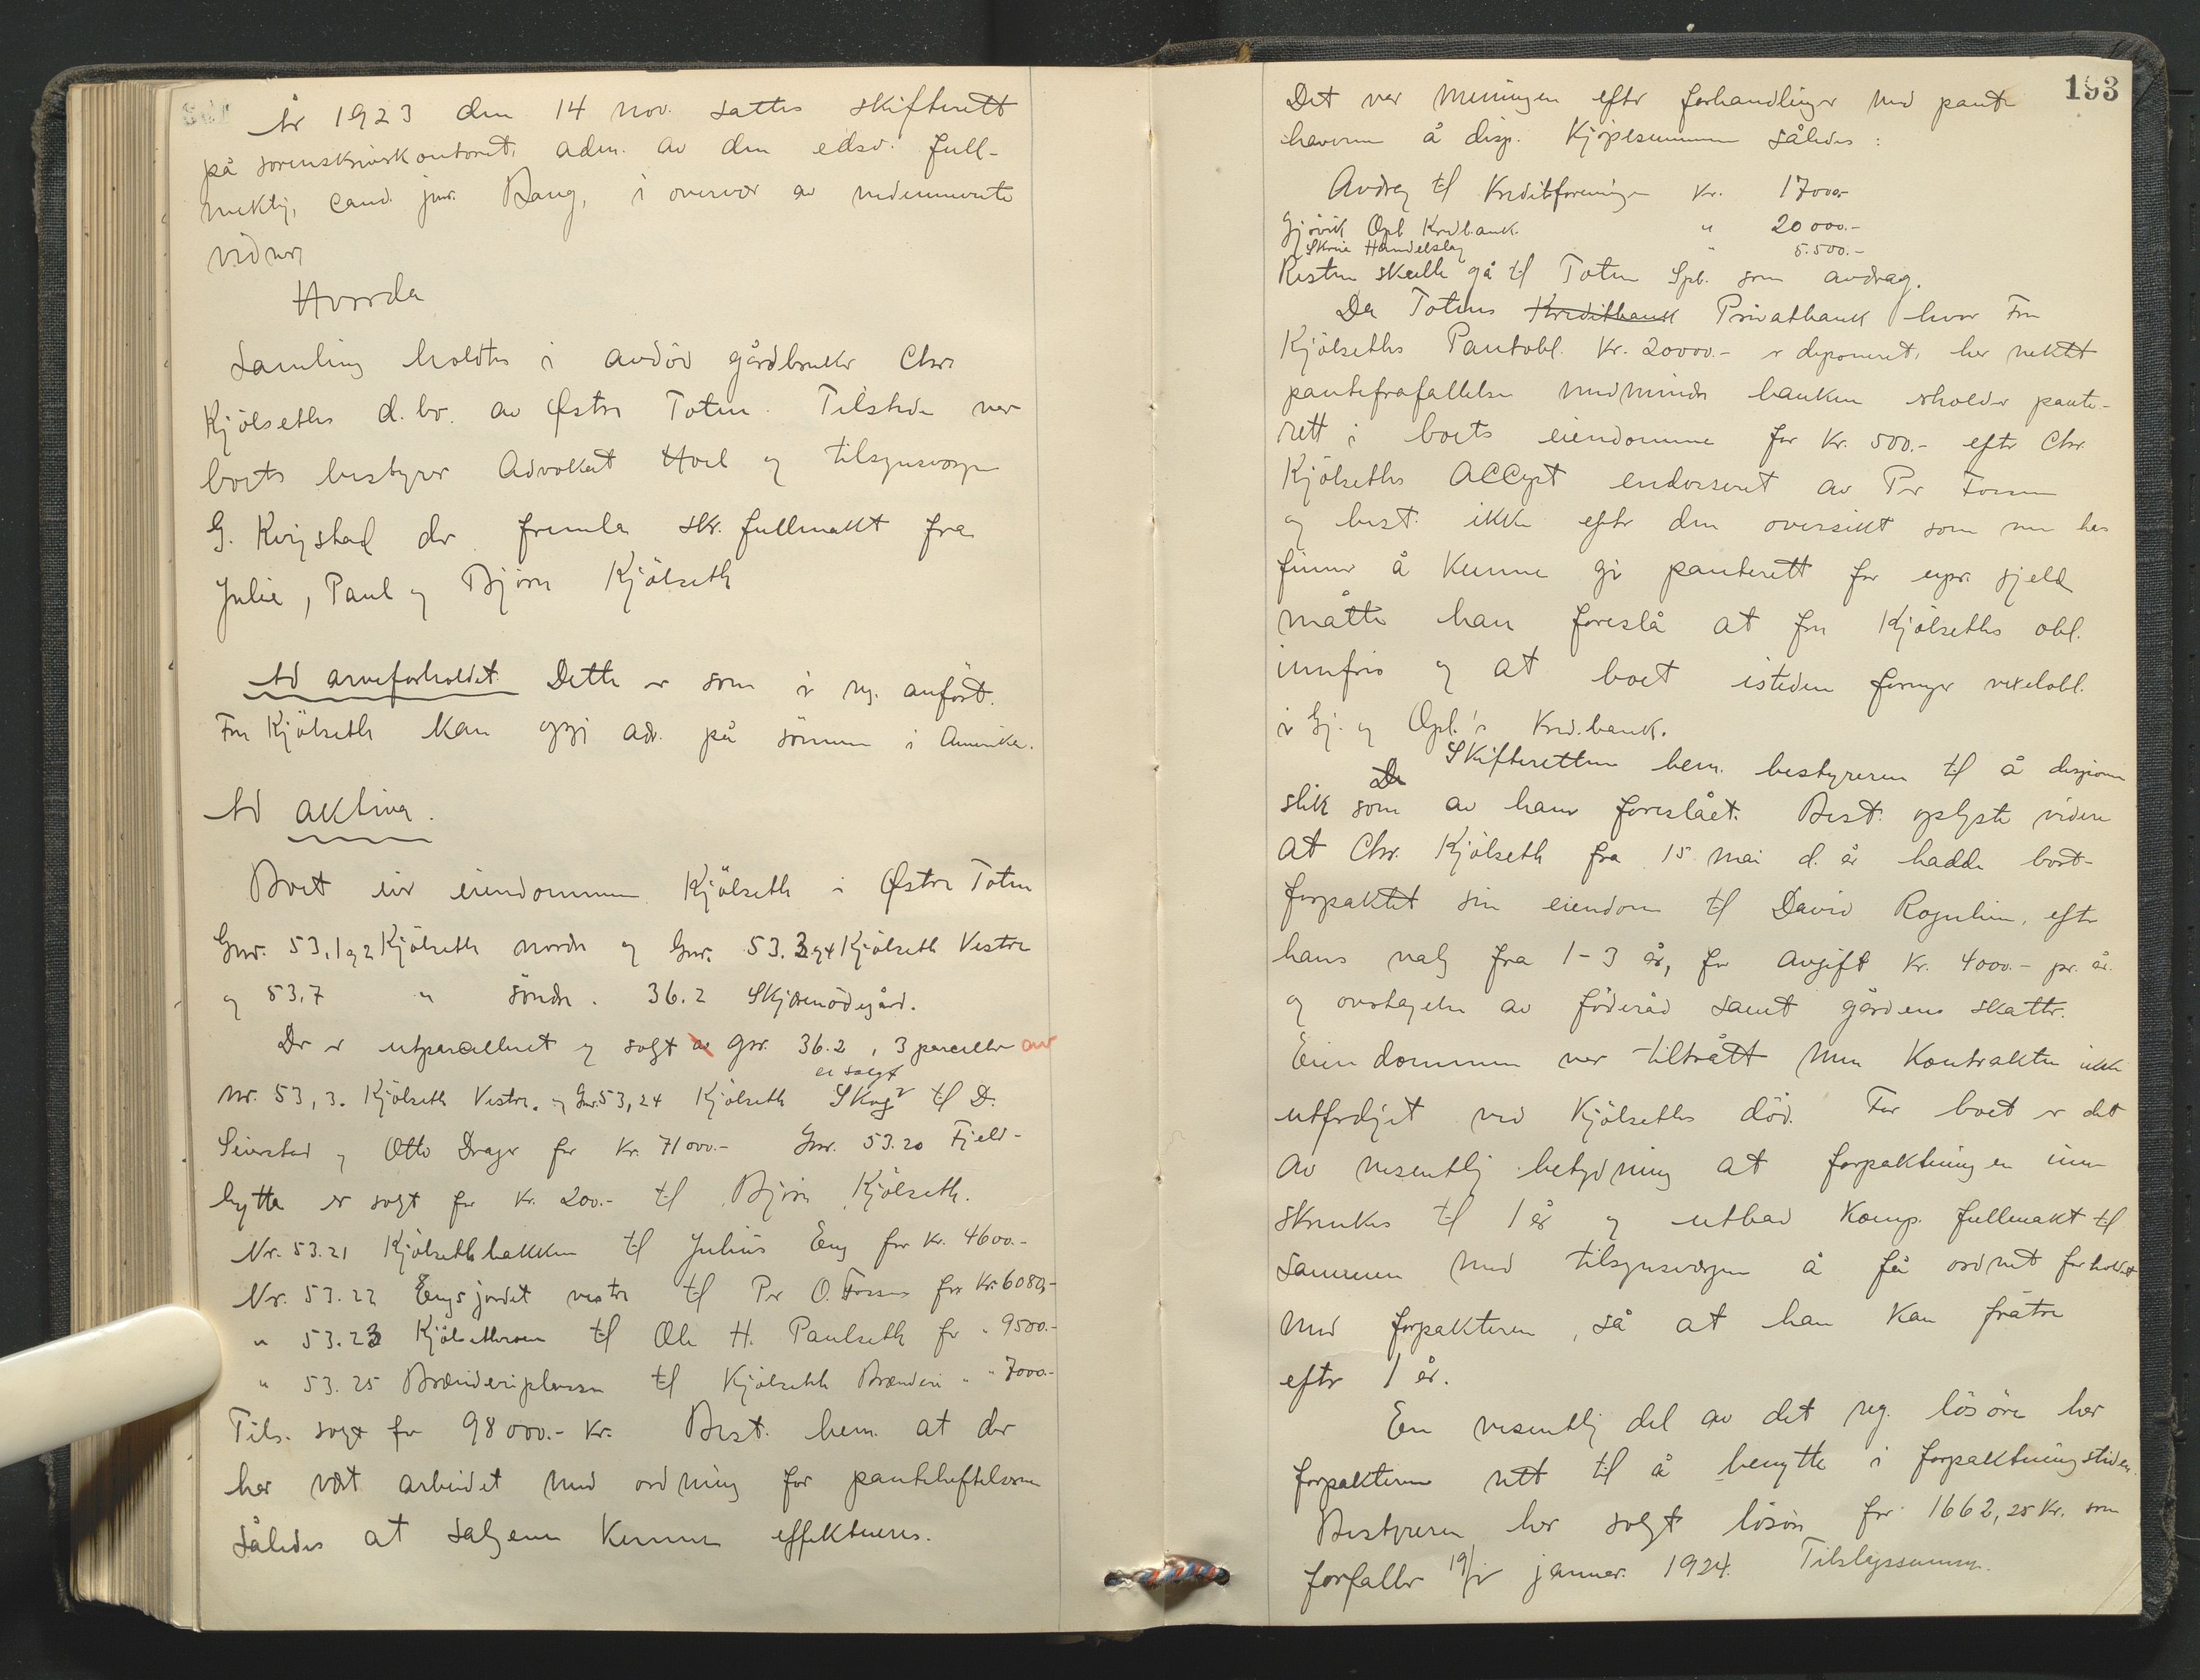 År 1923 den 14 nov. sattes skifterett
på sorenskriverkontoret, adm. av den edsv. full-
mektig, cand. jur. Bang, i overvær av nedennevnte
vidner,
Hvorda
Samling holdtes i avdöd gårdbruker Chr.
Kjölseths d.bo. av Østre Toten. Tilstede var
boets bestyrer Advokat Hoel og tilsynsvergen
G. Kvigstad der fremla skr. fullmakt fra
Julie, Paul og Björn Kjölseth
Ad arveforholdet. Dette er som i reg. anfört.
Fru Kjölseth kan opgi adr. på sönnen i Amerika.
Ad aktiva.
Boet eier eiendommen Kjölseth i Østre Toten
Gnr. 53,1 og 2 Kjölseth nordre og Gnr. 53.3 og 4 Kjölseth Vestre
og 53.7 " söndre. 36.2 Skjærnödegård.
Der er utparcelleret og solgt av gnr. 36.2, 3 parceller av
er solgt
Nr. 53,3. Kjölseth Vestre. og Gnr. 53,24 Kjölseth Skog til D.
Seierstad og Otto Drager for Kr. 71000.- Gnr. 53.20 Fjeld-
hytte er solgt for Kr. 200.- til Björn Kjölseth.
Nr. 53.21 Kjölsethbakken til Julius Eng for Kr. 4600.-
Nr. 53.22 Engsjordet vestre til Per O. Fossen for Kr. 6080,-
" 53.23 til Ole H. Paulseth for " 9500.-
" 53.25 Brænderiplassen til Kjölseth Brænderi " " 7000.-
Tils. solgt for 98000.- Kr. Best. bem. at der
har vært arbeidet med ordning for pantheftelserne
således at salgene kunne effektueres.
193
Det var meningen efter forhandlinger med pante
haverne å disp. Kjöpesummen således:
Avdrag til Kreditforeningen Kr. 17000.-
Gjövik Opl Kredbank. " 20000.-
Skreia Handelslag " 5.500.-
Resten skulle gå til Toten Spb. som avdrag.
Da Totens Kreditbank Privatbank hvor Fru
Kjölseths Pantobl. Kr. 20000.- er deponeret, har nektet
pantefrafallelse medmindre banken erholder pante-
rett i boets eiendomme for Kr. 500.- efter Chr.
Kjölseths accept endosseret av Per Fossen
og best. ikke efter den oversikt som nu has
finner å kunne gi panterett for egen gjeld
måtte han foreslå at fru Kjölseths obl.
innfris og at boet isteden fornyer vexelobl.
i Gj. og Opl.'s Kred.bank.
Skifteretten bem. bestyreren til å disponere
De
slik som av ham foreslået. Best. oplyste videre
at Chr. Kjölseth fra 15 mai d. år hadde bort-
forpaktet sin eiendom til David Rognlien, efter
hans valg fra 1-3 år, for avgift Kr. 4000.- pr. år
og overtagelse av föderåd samt gårdens skatter.
Eiendommen var tiltrått men Kontrakten ikke
utferdiget ved Kjölseths död. For boet er det
av vesentlig betydning at forpaktningen inn-
skrenkes til 1 år og utbad komp. fullmakt til
sammen med tilsynsvergen å få ordnet forholdet
med forpakteren, så at han kan fratre
efter 1 år.
En vesentlig del av det reg. lösöre har
forpakteren rett til å benytte i forpaktningstiden.
Bestyreren har solgt lösöre for 1662,25 Kr. som
forfaller januar 1924. Tilslagssummen.